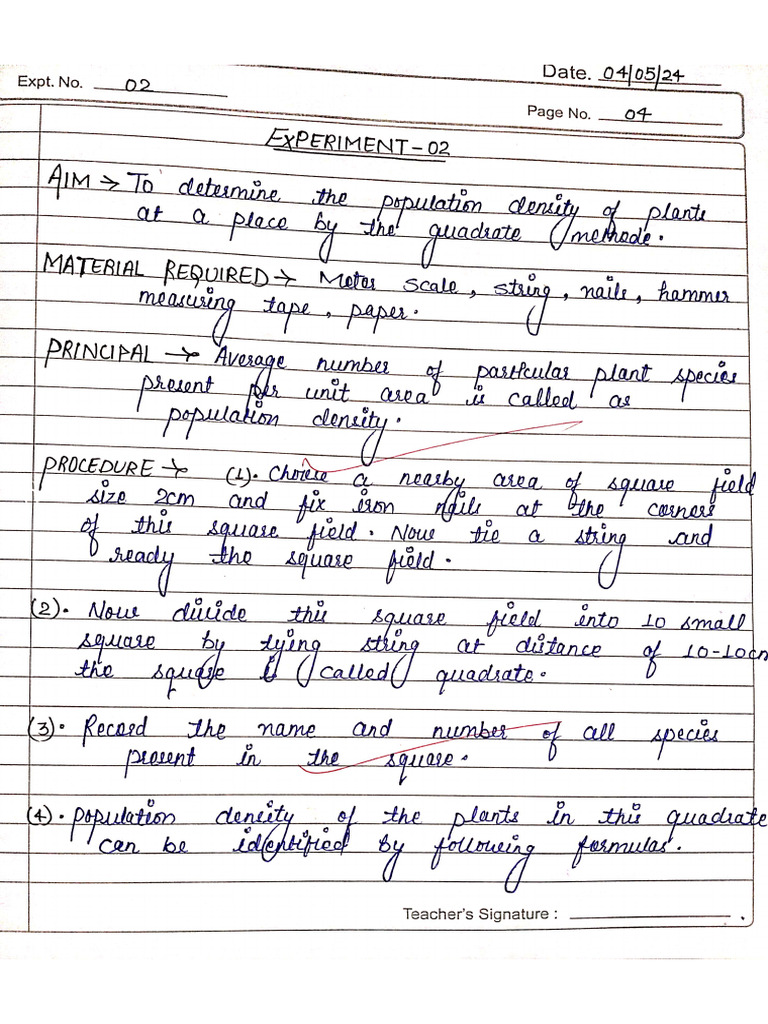 Date. 04/05/24
Expt. No. 02
Page No. 04
EXPERIMENT-02
AIM → To determine the population density of plants
at a place by the quadrate methode.
MATERIAL REQUIRED → Meter scale, string, nails, hammer
measuring tape, paper.
PRINCIPAL → Average number of particular plant species
present per unit area is called as
population density.
PROCEDURE → (1). Choose a nearby area of square field
size 2cm and fix iron nails at the corners
of this square field. Now tie a string and
ready the square field.
(2). Now divide this square field into 10 small
square by tying string at distance of 10-10cm
the square is called quadrate.
(3). Record the name and number of all species
present in the square.
(4). population density of the plants in this quadrate
can be identified by following formulas.
Teacher's Signature :